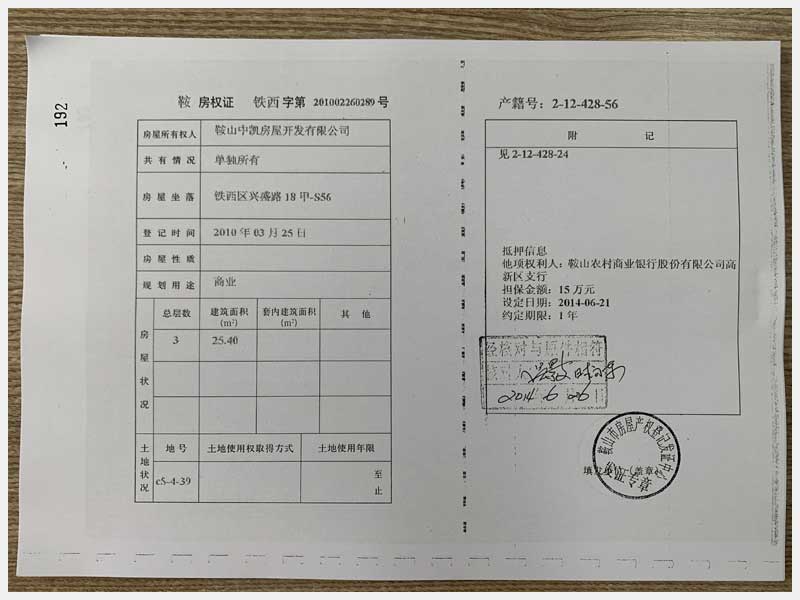 192
鞍 房权证 铁西 字第 201002260289 号
房屋所有权人 鞍山中凯房屋开发有限公司
共有情况 单独所有
房屋坐落 铁西区兴盛路 18 甲-S56
登记时间 2010 年 03 月 25 日
房屋性质
规划用途 商业
房屋状况
总层数 建筑面积(m²) 套内建筑面积(m²) 其他
3 25.40
土地状况
地号 土地使用权取得方式 土地使用年限
c5-4-39 至
止
产籍号: 2-12-428-56
附 记
见 2-12-428-24
抵押信息
他项权利人: 鞍山农村商业银行股份有限公司高
新区支行
担保金额: 15 万元
设定日期: 2014-06-21
约定期限: 1 年
经核对与原件相符
核对人
2014 6 26
鞍山市房屋产权登记发证中心
填发单位(盖章)
发证专章